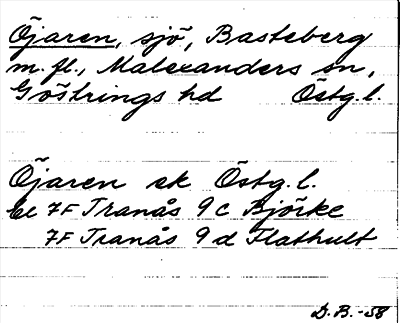 Öjaren, sjö, Basteberg
m.fl., Malexanders sn,
Göstrings hd Östg.l.
Öjaren ek Östg.l.
bl 7F Tranås 9c Björke
7F Tranås 9d Flathult
D.B.-58